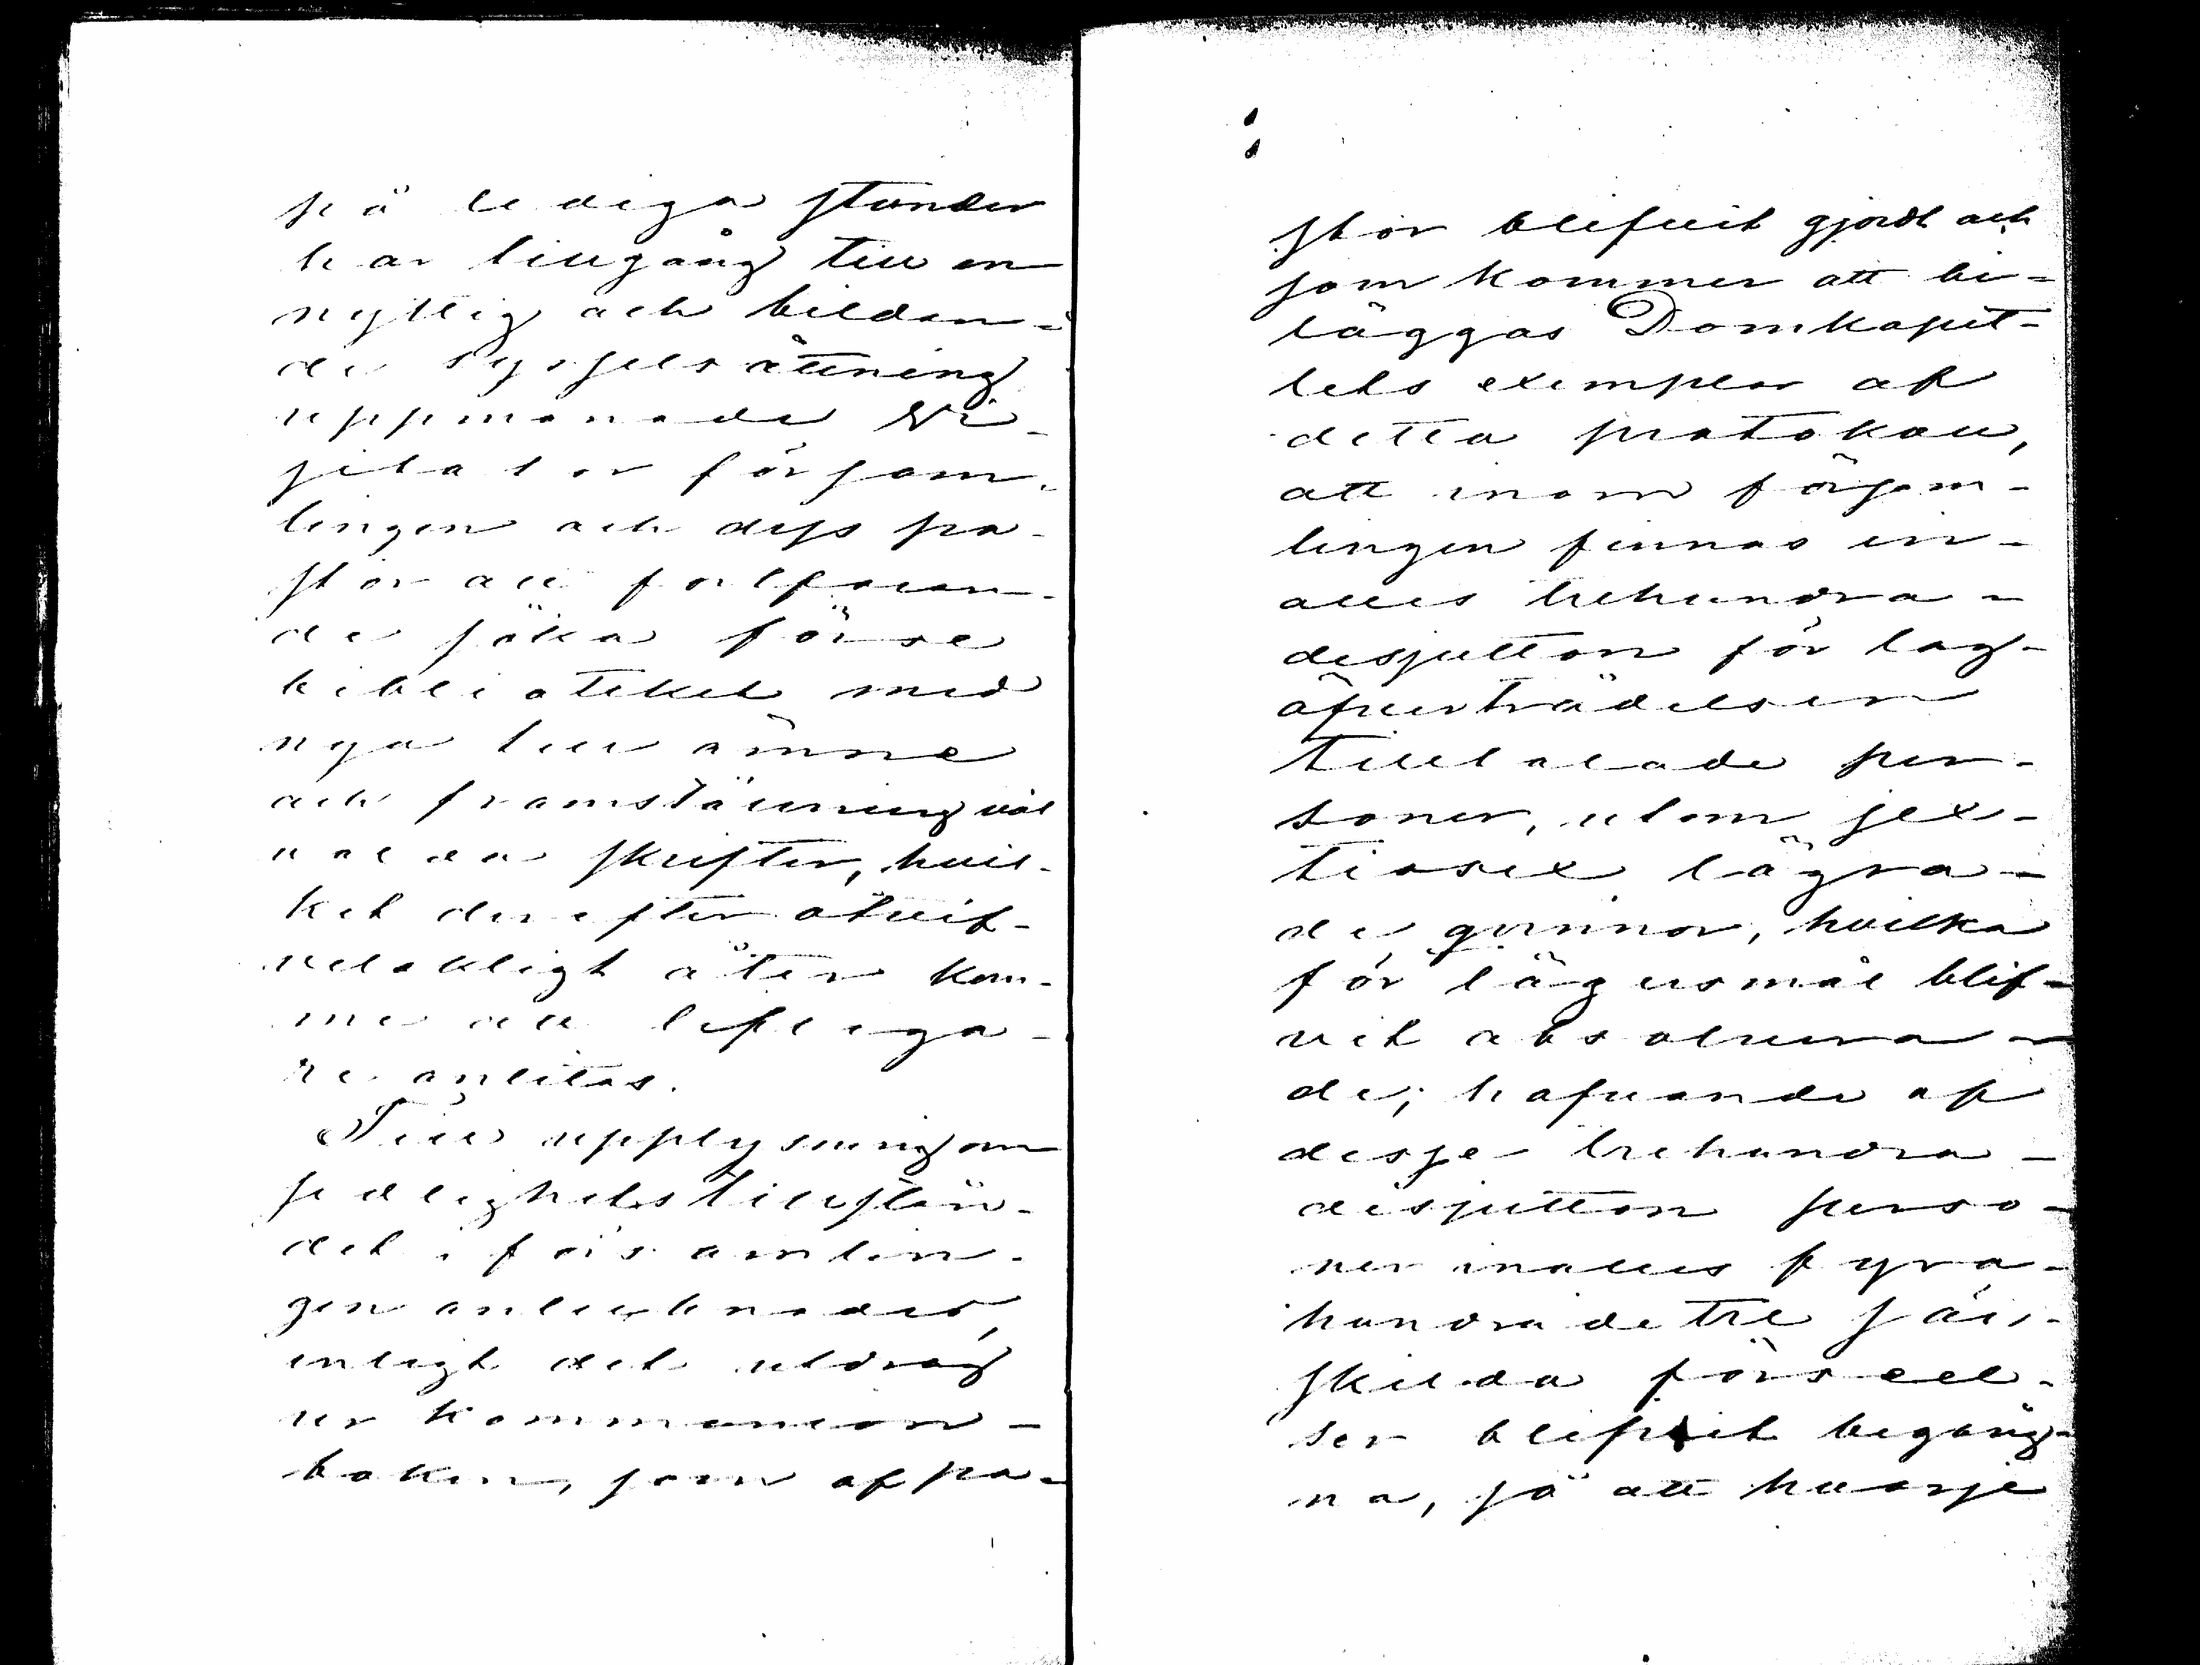 på lediga stunder
har tillgång till en
nyttig och bildan-
de sysselsättning
uppmanade Vi-
sitator försam-
lingen och dess pa-
stor att fortfaran-
de söka förse
biblioteket med
nya till ämne
och framställning väl
valda skrifter, hvil-
ket derefter otvif-
velaktigt åter kom-
me att lifliga-
re anlitas.
Till upplysning om
sedlighetstillstån-
det i församlin-
gen antecknades,
enligt det utdrag
ur kommunion-
boken, som af pa-
stor blifvit gjordt och
som kommer att bi-
läggas Domkapit-
lets exemplar af
detta protokoll,
att inom försam-
lingen finnas in-
alles trehundra-
desjutton för lag-
öfverträdelsen
tilltalade per-
soner, utom sex-
tiosex lägra-
de qvinnor, hvilka
för lägersmål blif-
vit absolvera-
de; hafvande af
desse trehundra-
desjutton perso-
ner inalles fyra-
hundradetre sär-
skilda förseel-
ser blifvit begång-
na, så att hvarje